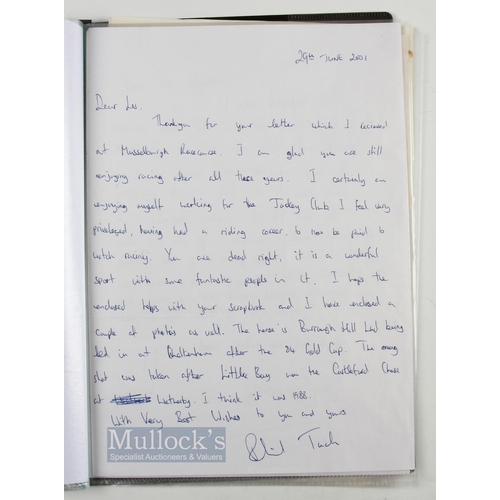 29th June 2001
Dear Les.
Thankyou for your letter which I recieved
at Musselburgh Racecourse. I am glad you are still
enjoying racing after all these years. I certainly am
enjoying myself working for the Jockey Club. I feel very
priveleged, having had a riding career, to now be paid to
watch racing. You are dead right, it is a wonderful
sport with some fantastic people in it. I hope the
enclosed helps with your scrapbook and I have enclosed a
couple of photos as well. The horse is Burrough Hill Lad being
led in at Cheltenham after the 84 Gold Cup. The
shot was taken after Little Bay won the Castleford Chase
at Wetherby. I think it was 1988.
With Very Best Wishes to you and yours
Phil Tuck
Mullock's
Specialist Auctioneers & Valuers